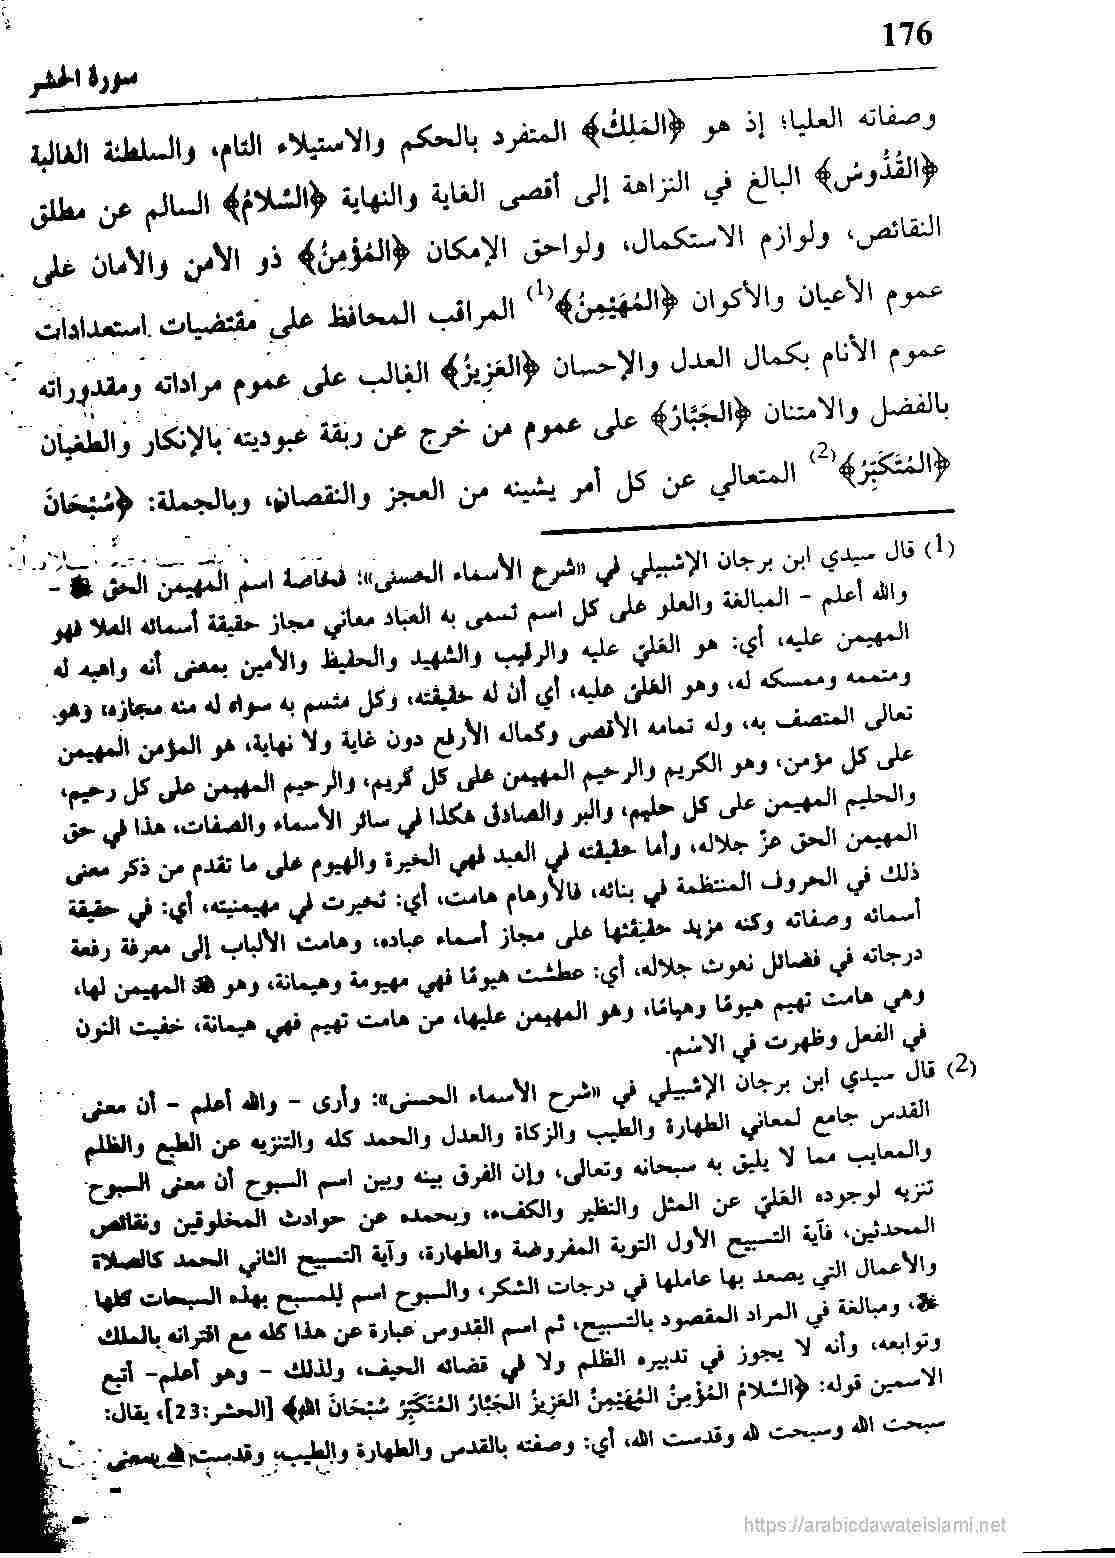 176
سورة الحشر
وصفاته العليا؛ إذ هو ﴿المَلِكُ﴾ المتفرد بالحكم والاستيلاء التام، والسلطنة الغالبة
﴿القُدُّوسُ﴾ البالغ في النزاهة إلى أقصى الغاية والنهاية ﴿السَّلامُ﴾ السالم عن مطلق
النقائص، ولوازم الاستكمال، ولواحق الإمكان ﴿المُؤْمِنُ﴾ ذو الأمن والأمان على
عموم الأعيان والأكوان ﴿المُهَيْمِنُ﴾(1) المراقب المحافظ على مقتضيات استعدادات
عموم الأنام بكمال العدل والإحسان ﴿العَزِيزُ﴾ الغالب على عموم مراداته ومقدوراته
بالفضل والامتنان ﴿الجَبَّارُ﴾ على عموم من خرج عن ربقة عبوديته بالإنكار والطغيان
﴿المُتَكَبِّرُ﴾(2) المتعالي عن كل أمر يشينه من العجز والنقصان، وبالجملة: ﴿سُبْحَانَ
(1) قال سيدي ابن برجان الإشبيلي في «شرح الأسماء الحسنى»: فخاصة اسم المهيمن الحق ﷻ -
والله أعلم - المبالغة والعلو على كل اسم تسمى به العباد معاني مجاز حقيقة أسمائه العلا فهو
المهيمن عليه، أي: هو العَليّ عليه والرقيب والشهيد والحفيظ والأمين بمعنى أنه واهبه له
ومتممه وممسكه له، وهو العَليّ عليه، أي أن له حقيقته، وكل متسم به سواه له منه مجازه، وهو
تعالى المتصف به، وله تمامه الأقصى وكماله الأرفع دون غاية ولا نهاية، هو المؤمن المهيمن
على كل مؤمن، وهو الكريم والرحيم المهيمن على كل كريم، والرحيم المهيمن على كل رحيم،
والحليم المهيمن على كل حليم، والبر والصادق هكذا في سائر الأسماء والصفات، هذا في حق
المهيمن الحق عزّ جلاله، وأما حقيقته في العبد فهي الحيرة والهيوم على ما تقدم من ذكر معنى
ذلك في الحروف المنتظمة في بنائه، فالأوهام هامت، أي: تحيرت في مهيمنيته، أي: في حقيقة
أسمائه وصفاته وكنه مزيد حقيقتها على مجاز أسماء عباده، وهامت الألباب إلى معرفة رفعة
درجاته في فضائل نعوت جلاله، أي: عطشت هيومًا فهي مهيومة وهيمانة، وهو ﷻ المهيمن لها،
وهي هامت تهيم هيومًا وهيامًا، وهو المهيمن عليها، من هامت تهيم فهي هيمانة، خفيت النون
في الفعل وظهرت في الاسم.
(2) قال سيدي ابن برجان الإشبيلي في «شرح الأسماء الحسنى»: وأرى - والله أعلم - أن معنى
القدس جامع لمعاني الطهارة والطيب والزكاة والعدل والحمد كله والتنزيه عن الطبع والظلم
والمعايب مما لا يليق به سبحانه وتعالى، وإن الفرق بينه وبين اسم السبوح أن معنى السبوح
تنزيه لوجوده العَليّ عن المثل والنظير والكفء، وبحمده عن حوادث المخلوقين ونقائص
المحدثين، فآية التسبيح الأول التوبة المفروضة والطهارة، وآية التسبيح الثاني الحمد كالصلاة
والأعمال التي يصعد بها عاملها في درجات الشكر، والسبوح اسم للمسبح بهذه السبحات كلها
ﷻ، ومبالغة في المراد المقصود بالتسبيح، ثم اسم القدوس عبارة عن هذا كله مع اقترانه بالملك
وتوابعه، وأنه لا يجوز في تدبيره الظلم ولا في قضائه الحيف، ولذلك - وهو أعلم- أتبع
الاسمين قوله: ﴿السَّلامُ المُؤْمِنُ المُهَيْمِنُ العَزِيزُ الجَبَّارُ المُتَكَبِّرُ سُبْحَانَ اللهِ﴾ [الحشر:23]، يقال:
سبحت الله وسبحت لله وقدست الله، أي: وصفته بالقدس والطهارة والطيب، وقدست لله بمعنى
https://arabicdawateislami.net